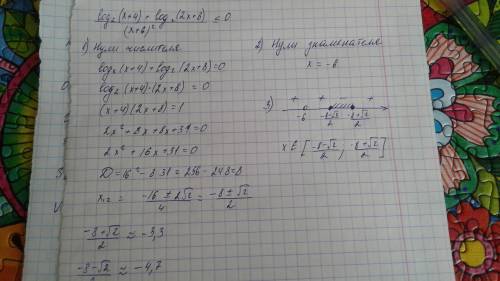 log₂(x+4) + log₂(2x+8) ≤ 0
(x+6)²
1) Нули числителя
log₂(x+4)+log₂(2x+8)=0
log₂(x+4)·(2x+8) = 0
(x+4)(2x+8)=1
2x²+8x+8x+31=0
2x²+16x+31=0
D=16²-8·31=256-248=8
x₁,₂ = -16 ± 2√2 / 4 = -8 ± √2 / 2
-8+√2 / 2 ≈ -3,3
-8-√2 / 2 ≈ -4,7
2) Нули знаменателя
x = -6
3) + + - +
-6 -8-√2 / 2 -8+√2 / 2
x ∈ [-8-√2 / 2 ; -8+√2 / 2]